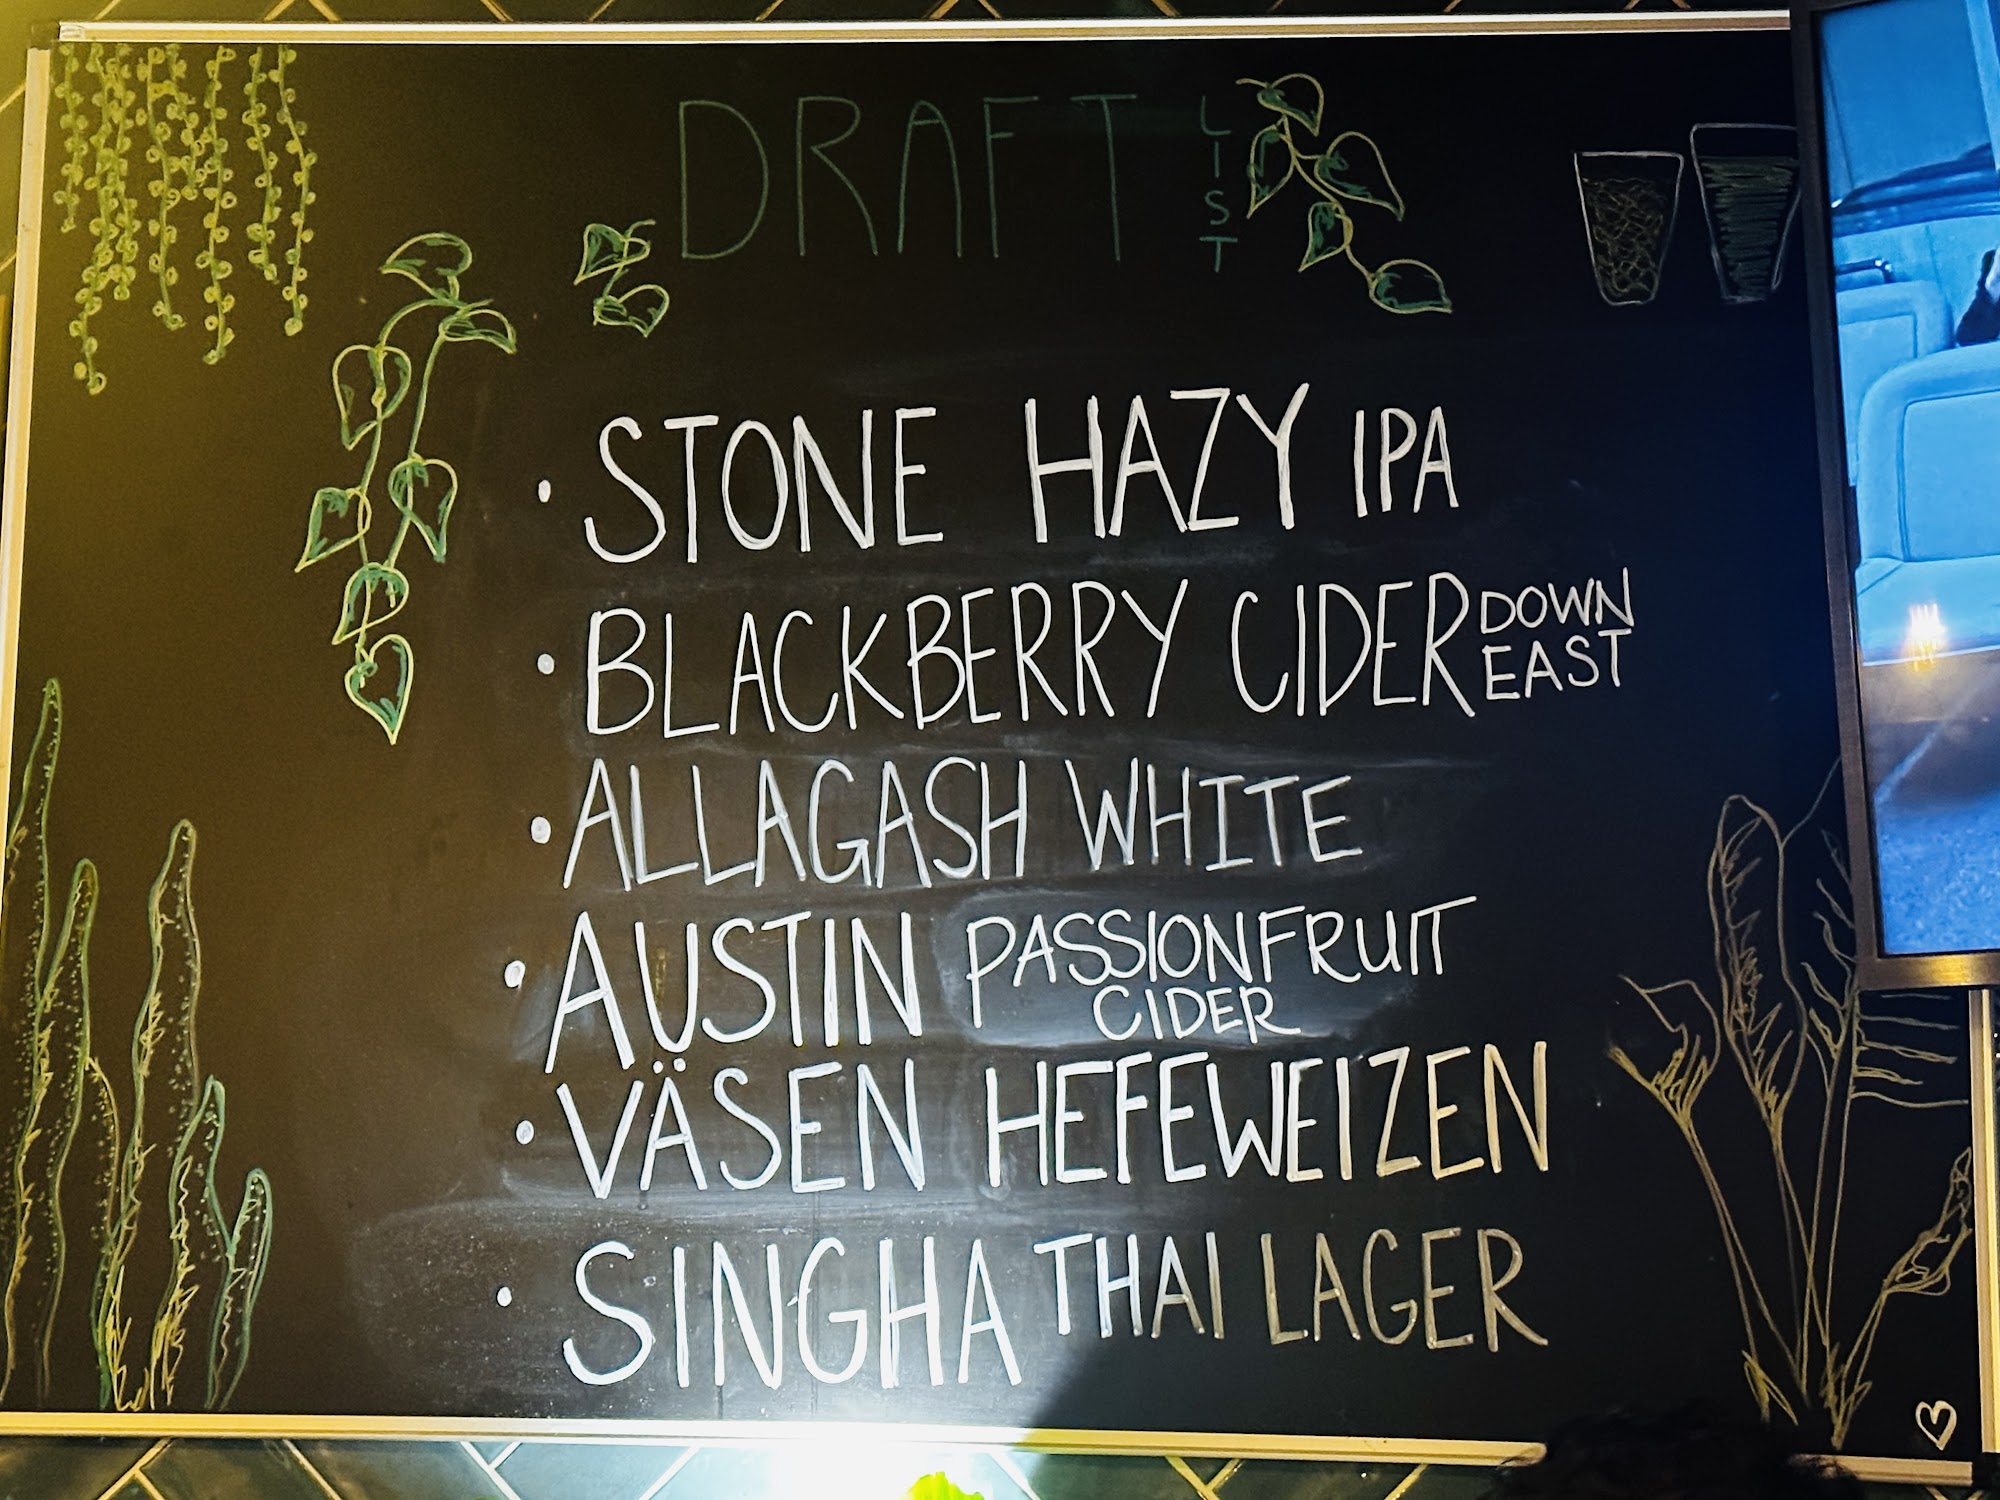 DRAFT LIST
• STONE HAZY IPA
• BLACKBERRY CIDER DOWN EAST
• ALLAGASH WHITE
• AUSTIN PASSIONFRUIT CIDER
• VÄSEN HEFEWEIZEN
• SINGHA THAI LAGER